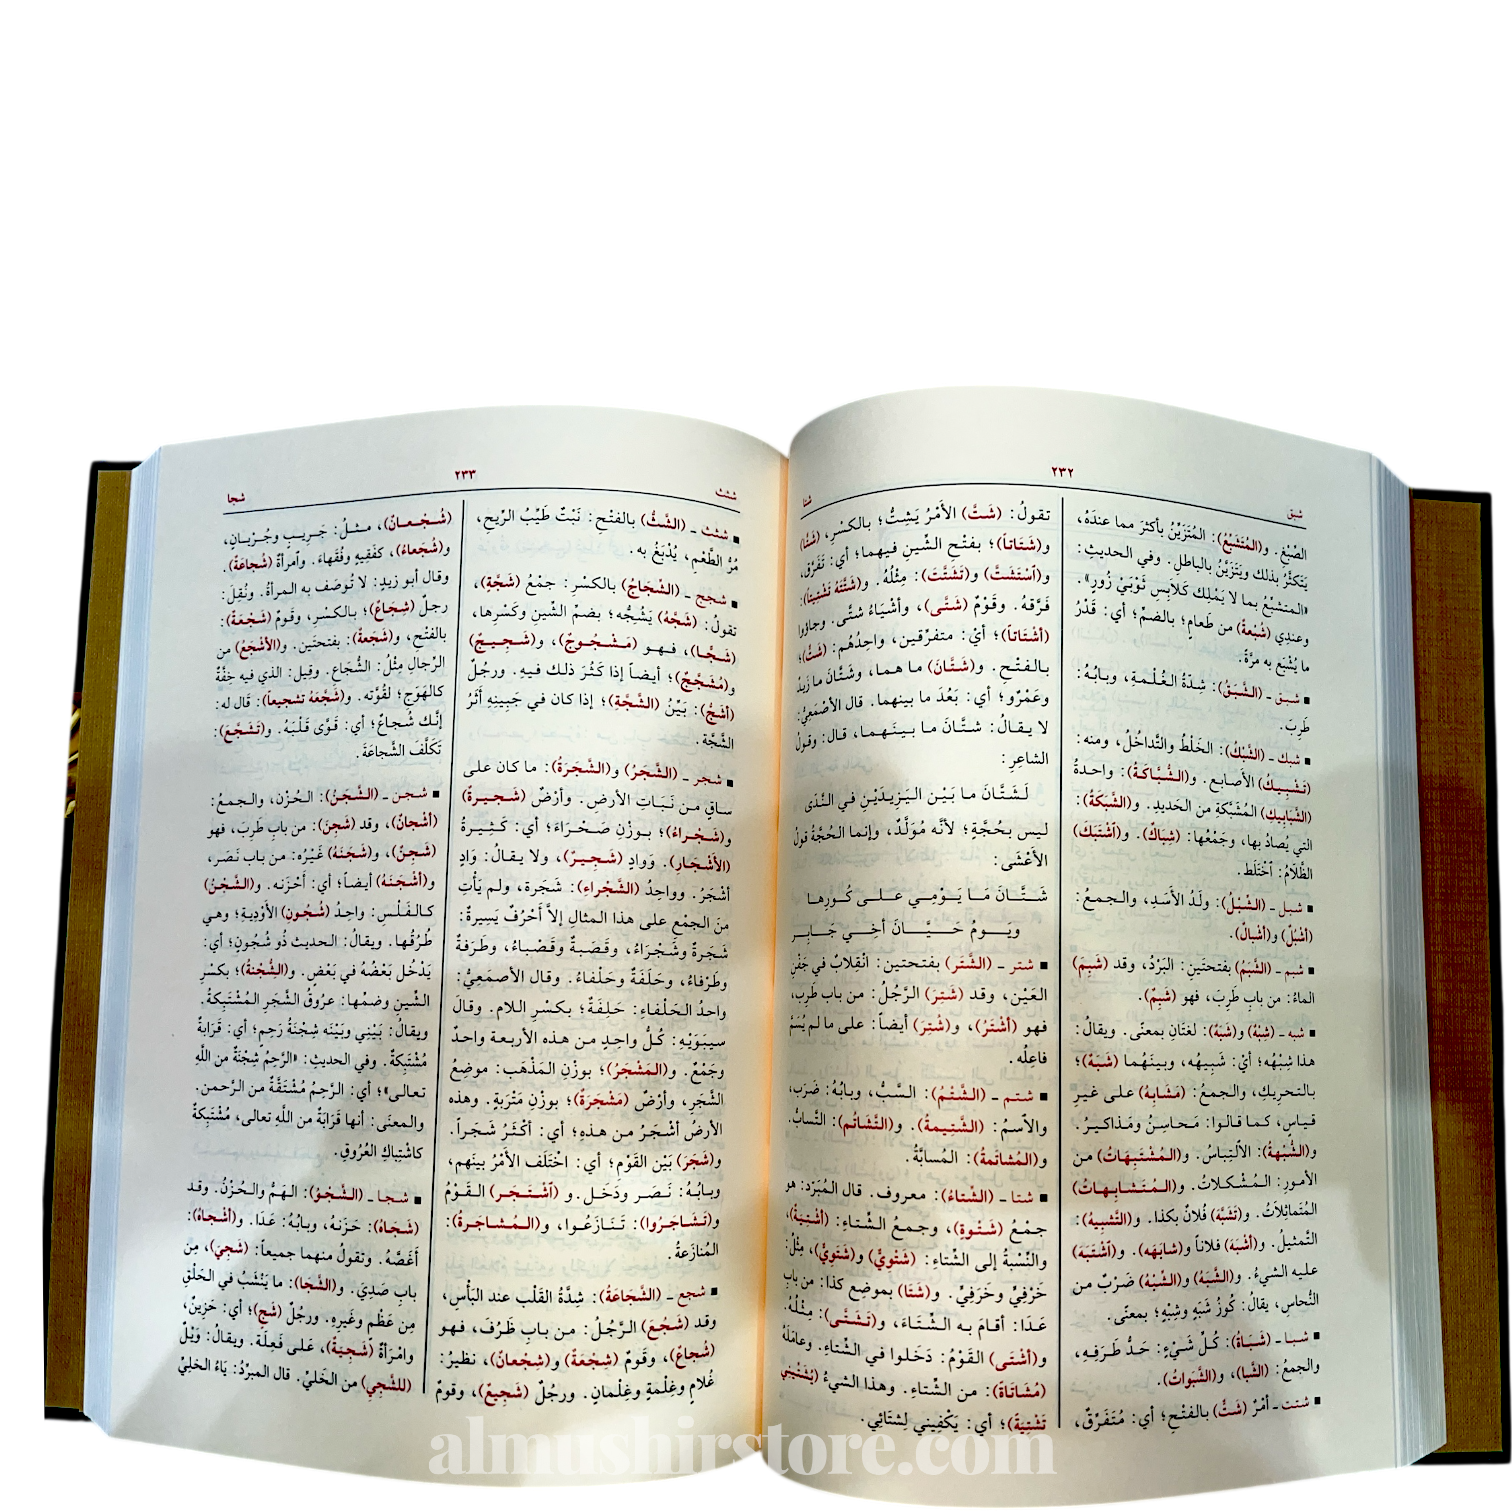 ٢٣٢
شبق
شتا
الصِّبْغِ. و(المُتَشَبِّعُ): المُتَزَيِّنُ بأكثرَ مما عندَهُ،
يَتكثَّرُ بذلك ويَتَزَيَّنُ بالباطلِ. وفي الحديثِ:
«المتشبِّعُ بما لا يَمْلِك كَلَابِسِ ثَوْبَيْ زُورٍ».
وعندِي (شُبْعةٌ) من طَعامٍ؛ بالضمِّ؛ أي: قَدْرُ
ما يُشْبَع به مرَّةً.
■ شبق ـ (الشَّبَقُ): شِدّةُ الغُلْمةِ، وبابُهُ:
طَرِبَ.
■ شبك ـ (الشَّبْكُ): الخَلْطُ والتَّداخُلُ، ومنه:
(تَشْبِيكُ) الأَصابعِ. و(الشُّبَّاكَةُ): واحدةُ
(الشَّبابِيكِ) المُشَبَّكةِ مِن الحَديدِ. و(الشَّبَكَةُ):
التي يُصادُ بها، وجَمْعُها: (شِباكٌ). و(اشْتَبَكَ)
الظَّلامُ: اخْتَلَط.
■ شبل ـ (الشِّبْلُ): ولَدُ الأَسَدِ، والجمعُ:
(أَشْبُلٌ) و(أَشْبالٌ).
■ شبم ـ (الشَّبَمُ) بفتحتَينِ: البَرْدُ، وقد (شَبِمَ)
الماءُ: من بابِ طَرِبَ، فهو (شَبِمٌ).
■ شبه ـ (شِبْهٌ) و(شَبَهٌ): لغتَان بمعنًى. ويقالُ:
هذا شِبْهُه؛ أيْ: شَبِيهُه، وبينَهُما (شَبَهٌ)؛
بالتحريكِ، والجمعُ: (مَشَابِهُ) على غيرِ
قياسٍ، كما قالوا: مَحاسِنُ ومَذاكيرُ.
و(الشُّبْهةُ): الالْتِباسُ. و(المُشْتَبِهَاتُ) من
الأمورِ: المُشْكلاتُ. و(المُتَشابِهاتُ)
المُتَماثِلاتُ. و(تَشَبَّهَ) فُلانٌ بكذا. و(التَّشبِيهُ):
التَّمثيلُ. و(أَشْبَهَ) فلاناً و(شابَهَه). و(اشْتَبَهَ)
عليه الشيءُ. و(الشَّبَهُ) و(الشِّبْهُ) ضَرْبٌ من
النُّحاسِ، يقالُ: كُوزُ شَبَهٍ وشِبْهٍ؛ بمعنًى.
■ شبا ـ (شَبَاةُ): كُلِّ شَيْءٍ: حَدُّ طَرَفِهِ،
والجمعُ: (الشَّبا)، و(الشَّبَواتُ).
■ شتت ـ أمْرٌ (شَتٌّ) بالفتحِ؛ أي: مُتَفَرِّقٌ،
تقولُ: (شَتَّ) الأَمْرُ يَشِتُّ؛ بالكسْرِ، (شَتًّا)
و(شَتَاتاً)؛ بفتْحِ الشِّينِ فيهما؛ أي: تَفَرَّقَ،
و(اسْتَشَتَّ) و(تَشَتَّتَ): مِثْلُهُ. و(شَتَّتَهُ تَشْتِيتاً):
فَرَّقهُ. وقَوْمٌ (شَتَّى)، وأشْيَاءُ شتَّى. وجاؤوا
(أَشْتَاتاً)؛ أيْ: متفرِّقين، واحِدُهُم: (شَتٌّ)؛
بالفتْحِ. و(شَتَّانَ) ما هما، وشَتَّانَ ما زَيدٌ
وعَمْرٌو؛ أي: بَعُدَ ما بينهما. قال الأصْمَعِيُّ:
لا يقالُ: شتَّانَ ما بينَهما، قال: وقولُ
الشاعِرِ:
لَشَتَّانَ ما بَيْن اليَزِيدَيْنِ في النَّدَى
ليس بحُجَّةٍ؛ لأنَّه مُوَلَّدٌ، وإنما الحُجَّةُ قولُ
الأَعْشَى:
شَتَّانَ مَا يَوْمِي عَلى كُورِها
ويَوْمُ حَيَّانَ أخِي جَابِرِ
■ شتر ـ (الشَّتَر) بفتحتين: انْقلابٌ في جَفْنِ
العَيْنِ، وقد (شَتِرَ) الرَّجُلُ: من بابِ طَرِب،
فهو (أَشْتَرُ)، و(شُتِرَ) أيضاً: على ما لم يُسَمَّ
فاعِلُه.
■ شتم ـ (الشَّتْمُ): السَّبُّ، وبابُهُ: ضَرَبَ،
والاسْمُ: (الشَّتِيمةُ). و(التَّشَاتُم): التَّسابُّ.
و(المُشاتَمةُ): المُسابَّةُ.
■ شتا ـ (الشِّتاءُ): معروف. قال المُبَرِّد: هو
جمْعُ (شَتْوةٍ)، وجمعُ الشِّتاءِ: (أَشْتِيَةٌ)،
والنِّسْبَةُ إلى الشِّتاءِ: (شَتْوِيٌّ) و(شَتَوِيٌّ)، مِثْلُ:
خَرْفِيٍّ وخَرَفِيٍّ. و(شَتَا) بموضِع كذا: من بابِ
عَدَا: أقامَ به الشِّتَاءَ، و(تَشَتَّى): مِثْلُهُ.
و(أَشْتَى) القَوْمُ: دَخَلوا في الشِّتاءِ. وعامَلَهُ
(مُشَاتَاةً): من الشِّتاءِ. وهذا الشيءُ (يُشَتِّيني
تَشْتِيَةً)؛ أي: يَكْفِيني لِشتَائِي.
٢٣٣
شثث
شجا
■ شثث ـ (الشَّثُّ) بالفتْحِ: نَبْتٌ طَيِّبُ الرِّيحِ،
مُرُّ الطَّعْمِ، يُدْبَغُ به.
■ شجج ـ (الشِّجَاجُ) بالكسْرِ: جمْعُ (شَجَّةٍ)،
تقولُ: (شَجَّهُ) يَشُجُّه؛ بضمِّ الشِّينِ وكَسْرِها،
(شَجًّا)، فهو (مَشْجُوجٌ)، و(شَجِيجٌ)
و(مُشَجَّجٌ)؛ أيضاً إذا كَثُرَ ذلك فيهِ. ورجُلٌ
(أَشَجُّ): بَيِّنُ (الشَّجَّةِ)؛ إذا كان في جَبِينِهِ أَثَرُ
الشَّجَّة.
■ شجر ـ (الشَّجَرُ) و(الشَّجَرَةُ): ما كان على
ساقٍ من نَبَاتِ الأرضِ. وأرْضٌ (شَجِيرةٌ)
و(شَجْراءُ)؛ بوزْنِ صَحْرَاءَ؛ أي: كَثِيرةُ
(الأشْجَارِ). ووادٍ (شَجِيرٌ)، ولا يقالُ: وَادٍ
أشْجَرُ. وواحِدُ (الشَّجْراءِ): شَجَرة، ولم يَأْتِ
منَ الجمْعِ على هذا المثال إلاَّ أحْرُفٌ يَسِيرةٌ:
شَجَرةٌ وشَجْرَاءُ، وقَصَبةٌ وقَصْباءُ، وطَرَفةٌ
وطَرْفاءُ، وحَلَفَةٌ وحَلْفاءُ. وقال الأصمَعِيُّ:
واحدُ الحَلْفاءِ: حَلِفَةٌ؛ بكسْرِ اللام. وقالَ
سيبَوَيْهِ: كُلُّ واحِدٍ من هذه الأربعة واحدٌ
وجَمْعٌ. و(المَشْجَرُ)؛ بوزْنِ المَذْهَب: موضِعُ
الشَّجَرِ، وأرْضٌ (مَشْجَرةٌ)؛ بوزْنِ مَتْرَبَةٍ. وهذه
الأرضُ أشْجَرُ من هذهِ؛ أي: أكْثَرُ شَجَراً.
و(شَجَرَ) بَيْن القَوْمِ؛ أي: اخْتَلَف الأَمْرُ بينَهم،
وبابُهُ: نَصَر ودَخَل. و(اشْتَجَر) القَوْمُ
و(تَشَاجَرُوا): تَنَازَعُوا، و(المُشاجَرةُ):
المُنازَعةُ.
■ شجع ـ (الشَّجَاعَةُ): شِدَّةُ القَلْب عند البَأْسِ،
وقد (شَجُعَ) الرَّجُلُ: من بابِ ظَرُفَ، فهو
(شُجاعٌ)، وقَومٌ (شِجْعَةٌ) و(شِجْعانٌ)، نظيرُ:
غُلامٍ وغِلْمةٍ وغِلْمانٍ. ورجُلٌ (شَجِيعٌ)، وقومٌ
(شُجْعانٌ)، مثلُ: جَرِيبٍ وجُرْبانٍ،
و(شُجَعاءُ)، كفَقِيهٍ وفُقَهاءَ. وامرأةٌ (شُجاعَةٌ).
وقال أبو زيدٍ: لا تُوصَف به المرأةُ. ونُقِلَ:
رجلٌ (شِجَاعٌ)؛ بالكسْرِ، وقَومٌ (شَجْعَةٌ):
بالفتْحِ، و(شَجَعةٌ): بفتحتَين. و(الأَشْجَعُ) من
الرِّجالِ مِثْلُ: الشُّجَاع. وقيل: الذي فيه خِفَّةٌ
كالهَوَجِ؛ لقُوَّته. و(شَجَّعَهُ تشجيعاً): قَال له:
إنَّك شُجاعٌ؛ أي: قَوَّى قَلْبَهُ. و(تَشَجَّعَ):
تَكَلَّفَ الشَّجاعَةَ.
■ شجن ـ (الشَّجَنُ): الحُزْن، والجمعُ:
(أَشْجانٌ)، وقد (شَجِنَ): من بابِ طَرِبَ، فهو
(شَجِنٌ)، و(شَجَنَهُ) غَيْرُه: من باب نَصَر،
و(أَشْجَنَهُ) أيضاً؛ أي: أحْزَنه. و(الشَّجْنُ)
كالفَلْسِ: واحِدُ (شُجُونِ) الأَوْديةِ؛ وهي
طُرُقُها. ويقالُ: الحديث ذُو شُجُونٍ؛ أي:
يَدْخُل بَعْضُهُ في بَعْضٍ. و(الشِّجْنةُ)؛ بكسْرِ
الشِّينِ وضمِّها: عرُوقُ الشَّجَرِ المُشْتَبِكةُ.
ويقالُ: بَيْنِي وبَيْنَه شِجْنَةُ رَحِمٍ؛ أي: قَرَابَةٌ
مُشْتَبِكةٌ. وفي الحديثِ: «الرَّحِمُ شِجْنَةٌ من اللَّهِ
تعالى»؛ أي: الرَّحِمُ مُشْتَقَّةٌ من الرَّحمن.
والمعنَى: أنها قَرَابَةٌ من اللَّهِ تعالى، مُشْتَبِكةٌ
كاشْتِباكِ العُرُوقِ.
■ شجا ـ (الشَّجْوُ): الهَمُّ والحُزْنُ. وقد
(شَجَاهُ): حَزَنهُ، وبابُهُ: عَدَا. و(أَشْجاهُ):
أَغَصَّهُ. وتقولُ منهما جميعاً: (شَجِيَ)، مِن
بابِ صَدِيَ. و(الشَّجَا): ما يَنْشَبُ في الحَلْقِ
مِن عَظْمٍ وغَيرِهِ. ورجُلٌ (شَجٍ)؛ أي: حَزِينٌ،
وامْرَأَةٌ (شَجِيَةٌ)، عَلى فَعِلَة. ويقالُ: وَيْلٌ
(للشَّجِي) من الخَليِّ. قال المبرِّدُ: يَاءُ الخَلِيِّ
almushirstore.com